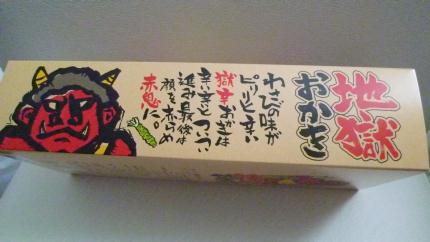 地獄
おかき
わさびの味が
ピリリと辛い
獄辛おかきは
辛い辛いとついつい
進み最後は
顔を赤らめ
赤鬼に。